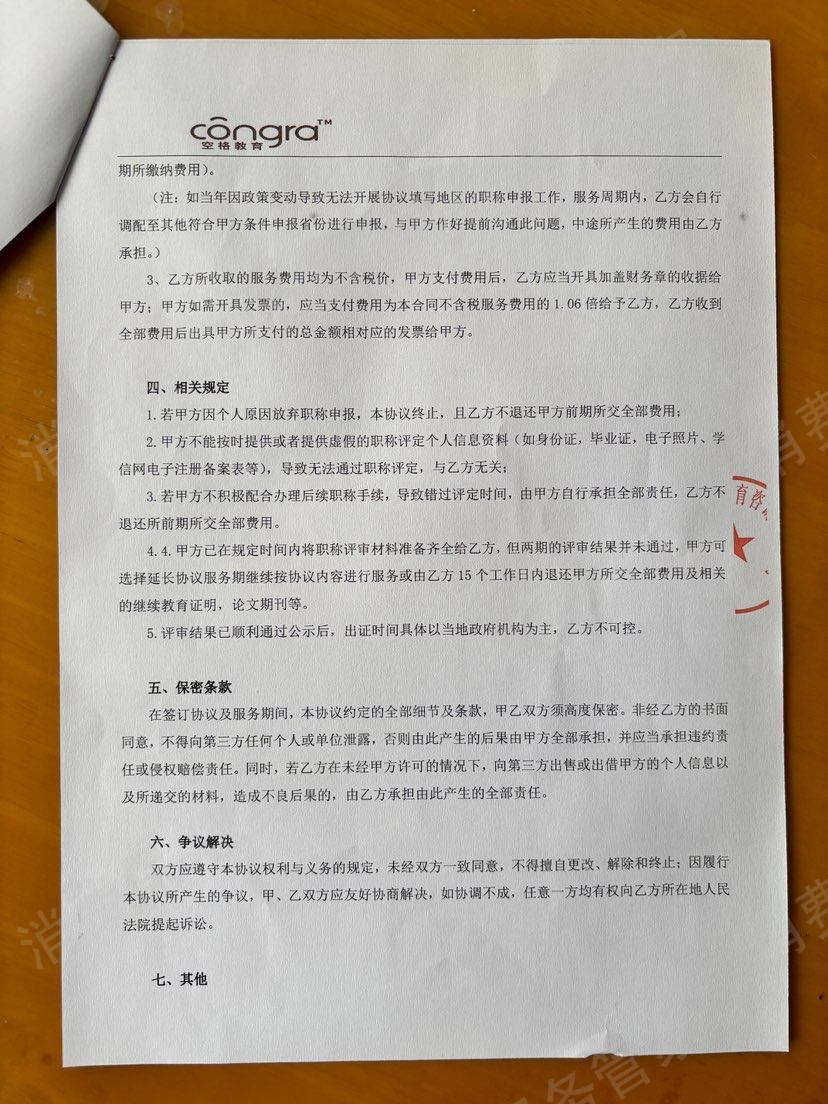 côngra™
空格教育
期所缴纳费用）。
（注：如当年因政策变动导致无法开展协议填写地区的职称申报工作，服务周期内，乙方会自行
调配至其他符合甲方条件申报省份进行申报，与甲方作好提前沟通此问题，中途所产生的费用由乙方
承担。）
3、乙方所收取的服务费用均为不含税价，甲方支付费用后，乙方应当开具加盖财务章的收据给
甲方；甲方如需开具发票的，应当支付费用为本合同不含税服务费用的 1.06 倍给予乙方，乙方收到
全部费用后出具甲方所支付的总金额相对应的发票给甲方。
四、相关规定
1.若甲方因个人原因放弃职称申报，本协议终止，且乙方不退还甲方前期所交全部费用；
2.甲方不能按时提供或者提供虚假的职称评定个人信息资料（如身份证，毕业证，电子照片、学
信网电子注册备案表等），导致无法通过职称评定，与乙方无关；
3.若甲方不积极配合办理后续职称手续，导致错过评定时间，由甲方自行承担全部责任，乙方不
退还所前期所交全部费用。
4.4.甲方已在规定时间内将职称评审材料准备齐全给乙方，但两期的评审结果并未通过，甲方可
选择延长协议服务期继续按协议内容进行服务或由乙方 15 个工作日内退还甲方所交全部费用及相关
的继续教育证明，论文期刊等。
5.评审结果已顺利通过公示后，出证时间具体以当地政府机构为主，乙方不可控。
五、保密条款
在签订协议及服务期间，本协议约定的全部细节及条款，甲乙双方须高度保密。非经乙方的书面
同意，不得向第三方任何个人或单位泄露，否则由此产生的后果由甲方全部承担，并应当承担违约责
任或侵权赔偿责任。同时，若乙方在未经甲方许可的情况下，向第三方出售或出借甲方的个人信息以
及所递交的材料，造成不良后果的，由乙方承担由此产生的全部责任。
六、争议解决
双方应遵守本协议权利与义务的规定，未经双方一致同意，不得擅自更改、解除和终止；因履行
本协议所产生的争议，甲、乙双方应友好协商解决，如协调不成，任意一方均有权向乙方所在地人民
法院提起诉讼。
七、其他
育咨